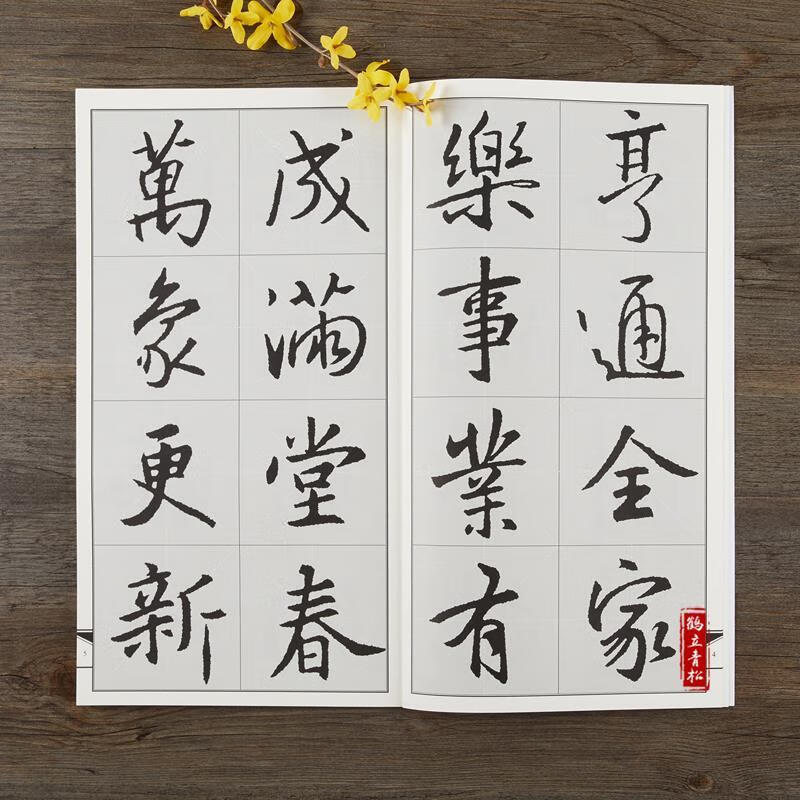 亨通全家
樂事業有
成滿堂春
萬象更新
鶴立青松
4
5